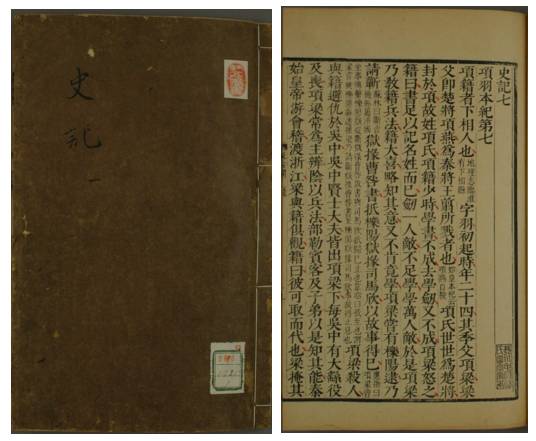 史記 一
史記七
項羽本紀第七
項籍者下相人也地理志臨淮有下相縣字羽初起時年二十四其季父項梁梁
父即楚將項燕爲秦將王翦所戮者也始皇本紀云項燕自殺項氏世世爲楚將
封於項故姓項氏項籍少時學書不成去學劒又不成項梁怒之
籍曰書足以記名姓而已劒一人敵不足學學萬人敵於是項梁
乃敎籍兵法籍大喜略知其意又不肯竟學項梁嘗有櫟陽逮乃
請蘄獄掾曹咎書抵櫟陽獄掾司馬欣以故事得已項梁殺人
與籍避仇於吳中吳中賢士大夫皆出項梁下每吳中有大繇役
及喪項梁常爲主辨陰以兵法部勒賓客及子弟以是知其能秦
始皇帝游會稽渡浙江梁與籍俱觀籍曰彼可取而代也梁掩其